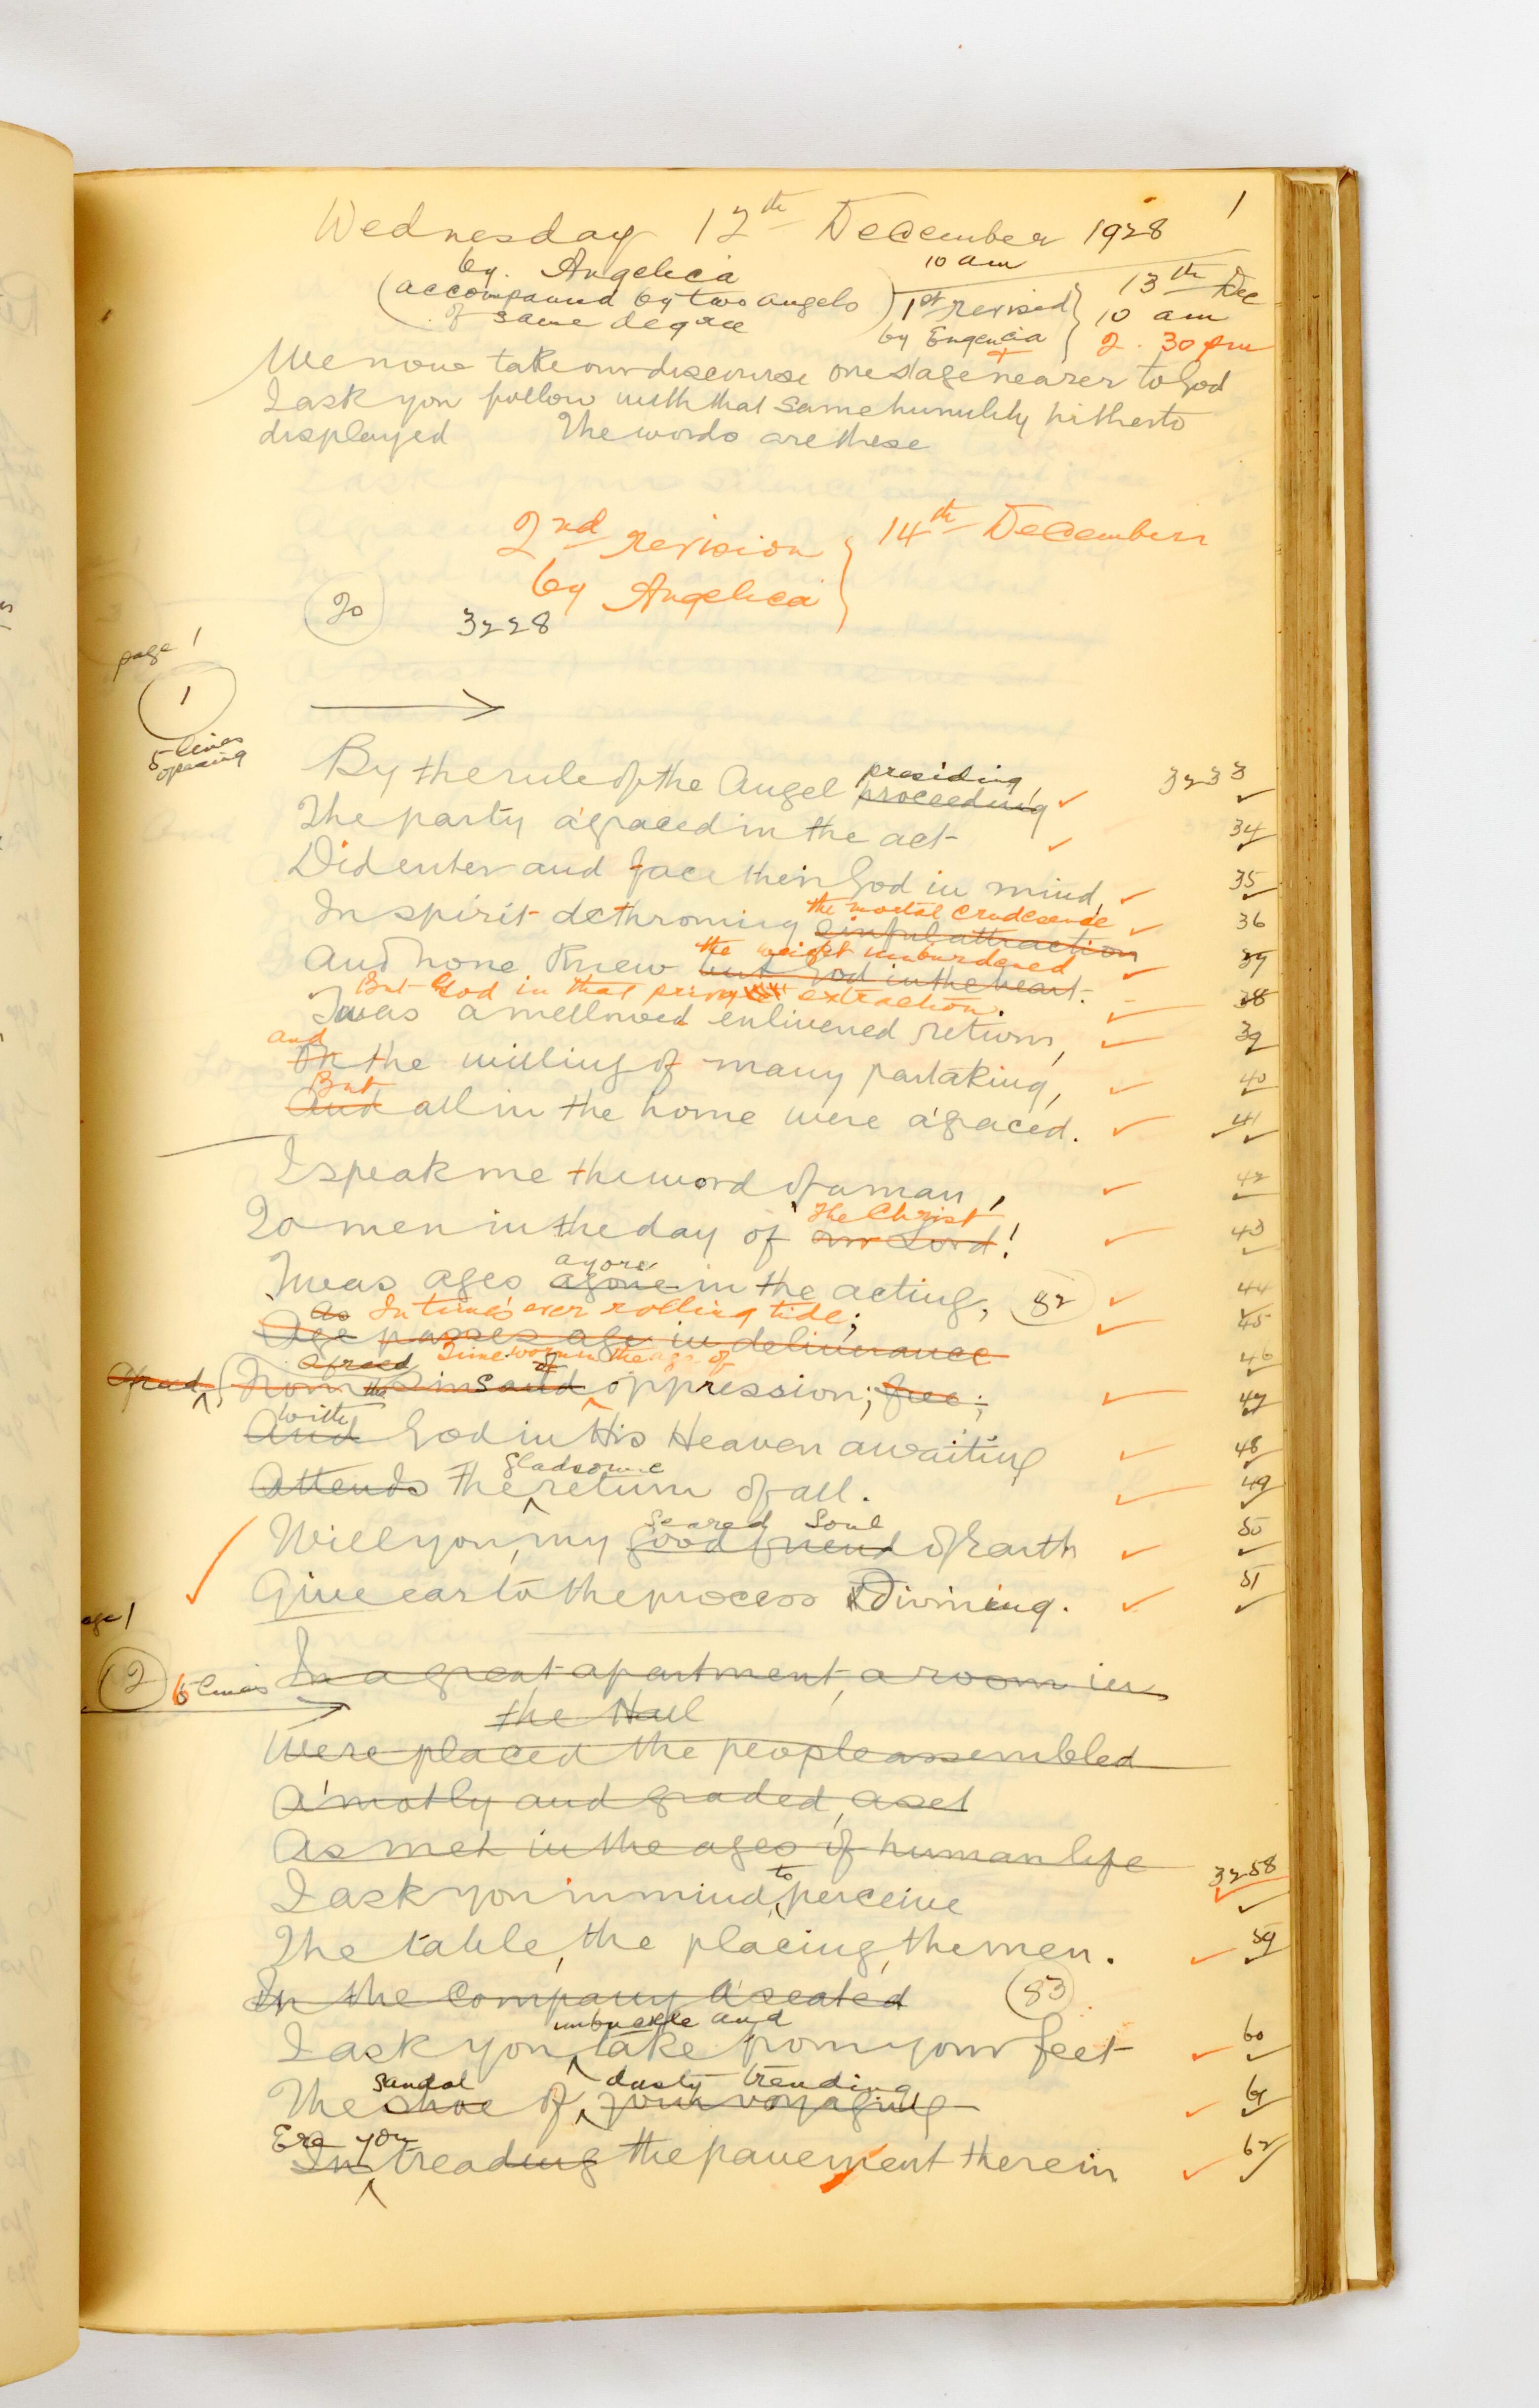 1
Wednesday 12th December 1928
by. Angelica 10 am
(accompanied by two angels of same degree)
1st revised by Eugencia } 13th Dec 10 am
2.30 pm
We now take our discourse one stage nearer to God
I ask you follow with that same humility hitherto
displayed The words are these
2nd revision by Angelica } 14th December
20 3228
page 1
1
5 lines opening
presiding
By the rule of the Angel proceeding, 3233
The party a'graced in the act 34
Did enter and face their God in mind, 35
the mortal crudescence
In spirit dethroning sinful attraction 36
the weight unburdened
And none knew but God in the heart. 37
But God in that privy extraction. 38
Twas a mellowed enlivened return, 39
and
On the willing of many partaking, 40
But
And all in the home were a'graced. 41
I speak me the word of a man, 42
The Christ
To men in the day of our Lord! 43
agore
Twas ages agone in the acting, 82 44
As In time's ever rolling tide; 45
Age passes age in deliverance
Afreed Time worn in the age of 46
Afreed from the sins and oppression; free; 47
with
And God in His Heaven awaiting 48
gladsome
Attends the return of all. 49
Seared Soul
Will you, my good friend of Earth 50
Give ear to the process Divining. 51
age 1
2 6 lines
In a great apartment, a room in
the Hall
Were placed the people assembled
A'motly and graded, aset
As met in the ages of human life
to 3258
I ask you in mind, perceive
The table, the placing, the men. 59
In the company a'seated 83
unbuckle and
I ask you take from your feet 60
sandal dusty treading
The shoe of your voyaging 61
Ere you
In treading the pavement therein 62